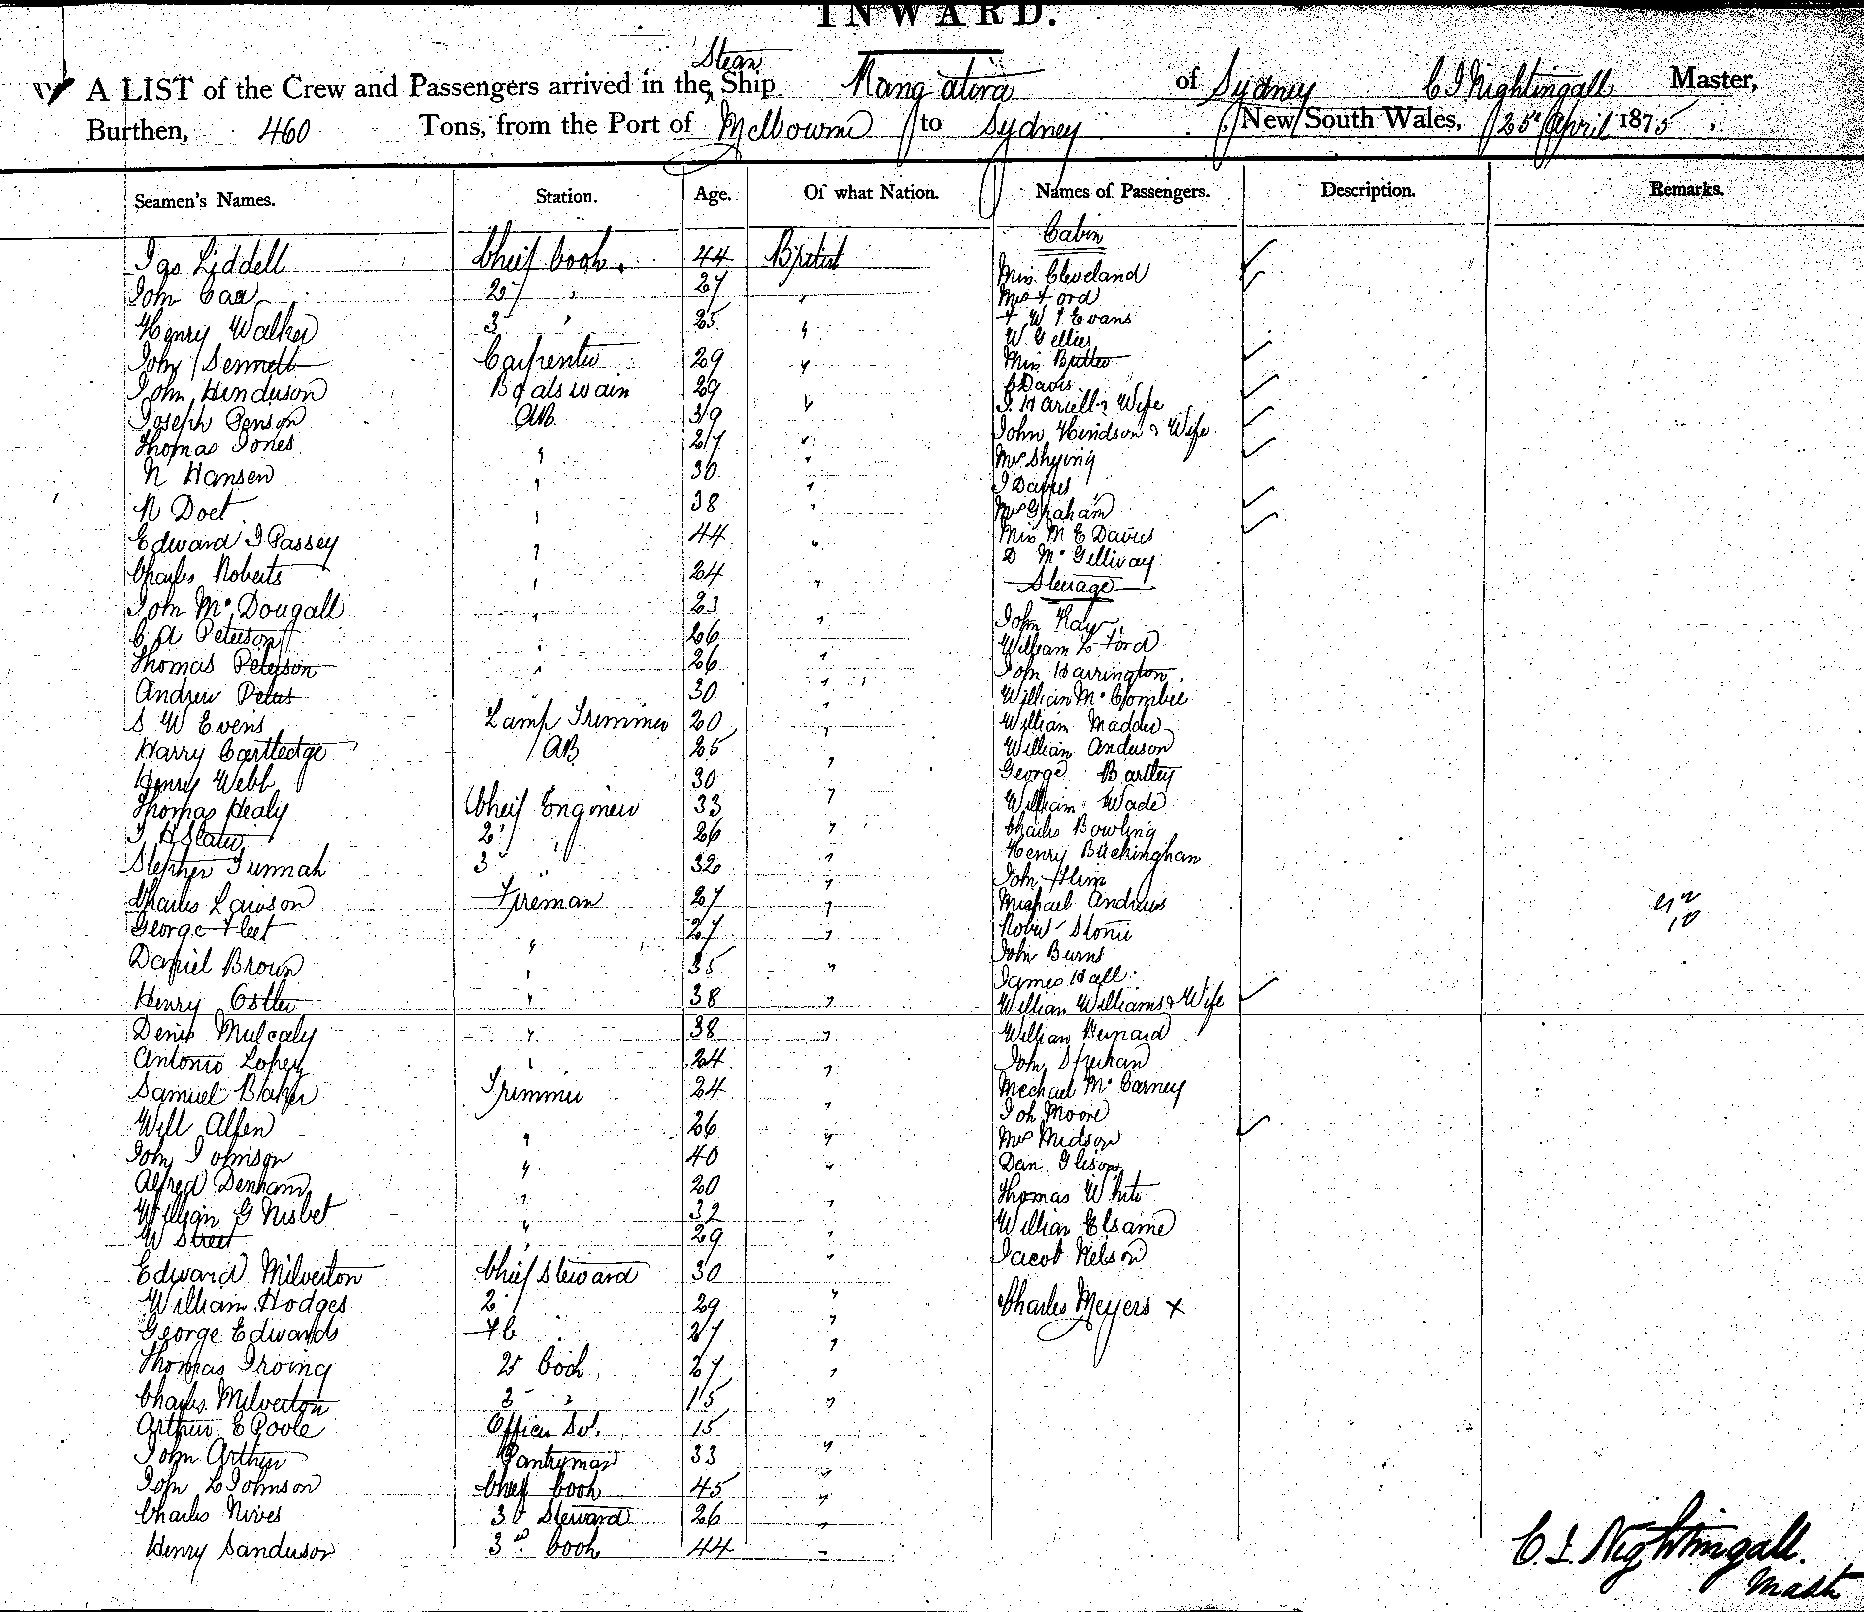 INWARD.
A LIST of the Crew and Passengers arrived in the Steam Ship Rangatira of Sydney C J Nightingall Master,
Burthen, 460 Tons, from the Port of Melbourne to Sydney New South Wales, 25th April 1875.
Seamen's Names. Station. Age. Of what Nation. Names of Passengers. Description. Remarks.
Cabin
Jas Liddell Cheif Cook. 44 British
Miss Cleveland
John Carr 2d " 27 "
Mrs Ford
Henry Walker 3 " 25 "
F W J Evans
W Gellies
John Sennett Carpenter 29 "
John Henderson Boatswain 29 "
C Davis
Joseph Penson AB. 39 "
Wife
Thomas Jones " 27 "
John Hindson & Wife
N Hansen " 30 "
Mrs Shying
N Doet " 38 "
J Davies
Mrs Graham
Edward J Passey " 44 "
Miss M E Davies
Charles Roberts " 24 "
D McGillivay
Steerage
John McDougall " 23 "
John Kay
C A Peterson " 26 "
William L Ford
Thomas Peterson " 26 "
John Harrington
Andrew Peters 30 "
William McCombie
S W Evens Lamp Trimmer 20 "
William Madder
Harry Cartledge AB 25 "
William Anderson
Henry Webb 30 "
George Bartley
Thomas Healy Cheif Engineer 33 "
William Wade
J H Slater 2d " 26 "
Charles Bowling
Stephen Tunnah 3 " 32 "
Henry Buckingham
John Flim
Charles Lawson Fireman 27 "
Michael Andrews
George Fleet " 27 "
Robert Stone
Daniel Brown " 35 "
John Burns
James Hall
Henry Ostler " 38 "
William Williams & Wife
Denis Mulcaly " 38 "
William Heinard
Antonio Lopez " 24 "
John Sheehan
Samuel Baker Trimmer 24 "
Mechael McCarney
Will Allen " 26 "
Joh Moore
Mrs Midson
John Johnson " 40 "
Dan Glison
Alfred Denham " 20 "
Thomas White
William G Nisbet " 32 "
William Elsame
W Street " 29 "
Jacob Nelson
Edward Milverton Chief Steward 30 "
William Hodges 2 " 29 "
Charles Meyers x
George Edwards F C " 27 "
Thomas Irving 2d Cook 27 "
Charles Milverton 3 " 15 "
Arthur E Poole Officers St. 15 "
John Arthur Pantryman 33 "
John L Johnson Chief Cook 45 "
Charles Nives 3d Steward 26 "
Henry Sanderson 3rd Cook 44 "
C J Nightingall.
Master